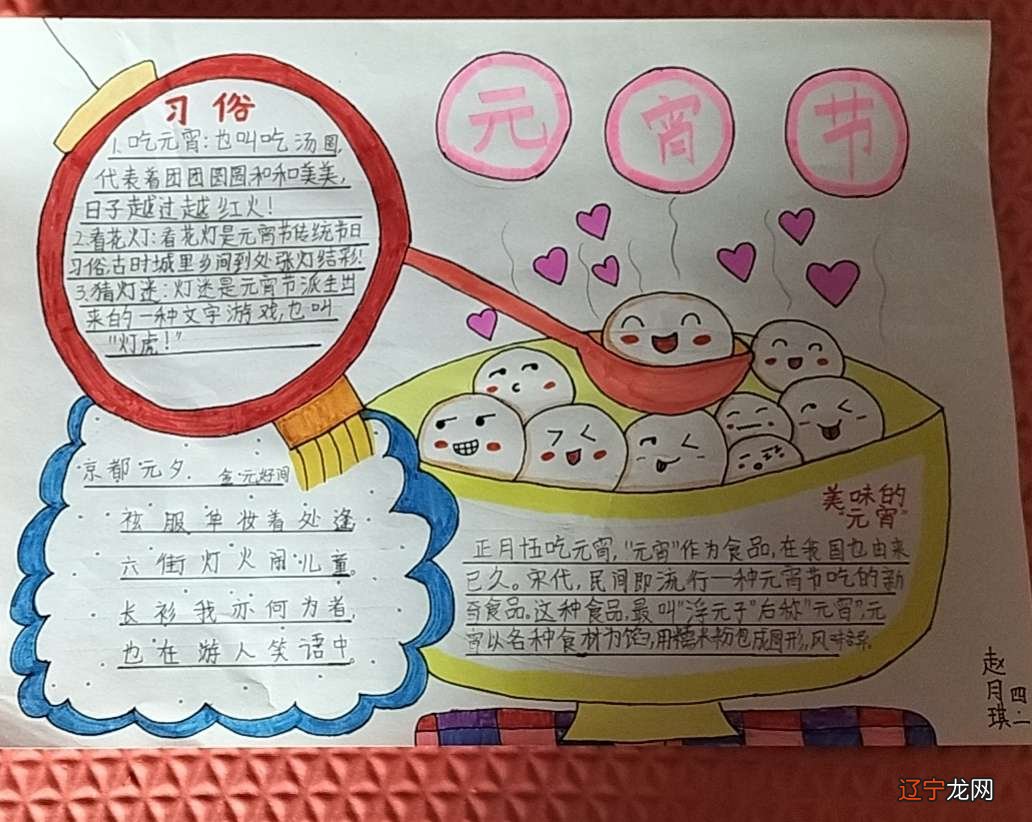 元宵节
习俗
1.吃元宵：也叫吃汤圆，
代表着团团圆圆和和美美，
日子越过越红火！
2.看花灯：看花灯是元宵节传统节日
习俗，古时城里乡间到处张灯结彩！
3.猜灯迷：灯迷是元宵节派生出
来的一种文字游戏，也叫
“灯虎！”
京都元夕． 金·元好问
袨服华妆着处逢
六街灯火闹儿童。
长衫我亦何为者，
也在游人笑语中。
美味的
“元宵”
正月十五吃元宵，“元宵”作为食品，在我国也由来
已久。宋代，民间即流行一种元宵节吃的新
奇食品。这种食品，最叫“浮元子”后称“元宵”，元
宵以各种食材为馅，用糯米粉包成圆形，风味
赵月琪
四·二
辽宁龙网